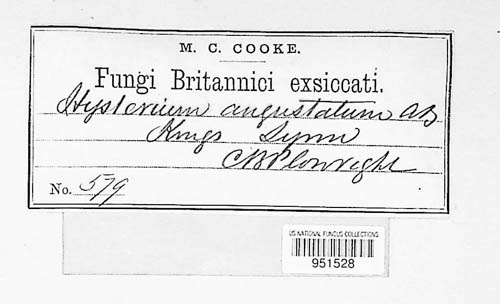 M. C. COOKE.
Fungi Britannici exsiccati.
Hysterium angustatum AB
Kings Lynn
CBPlowright
No. 579
US NATIONAL FUNGUS COLLECTIONS
951528